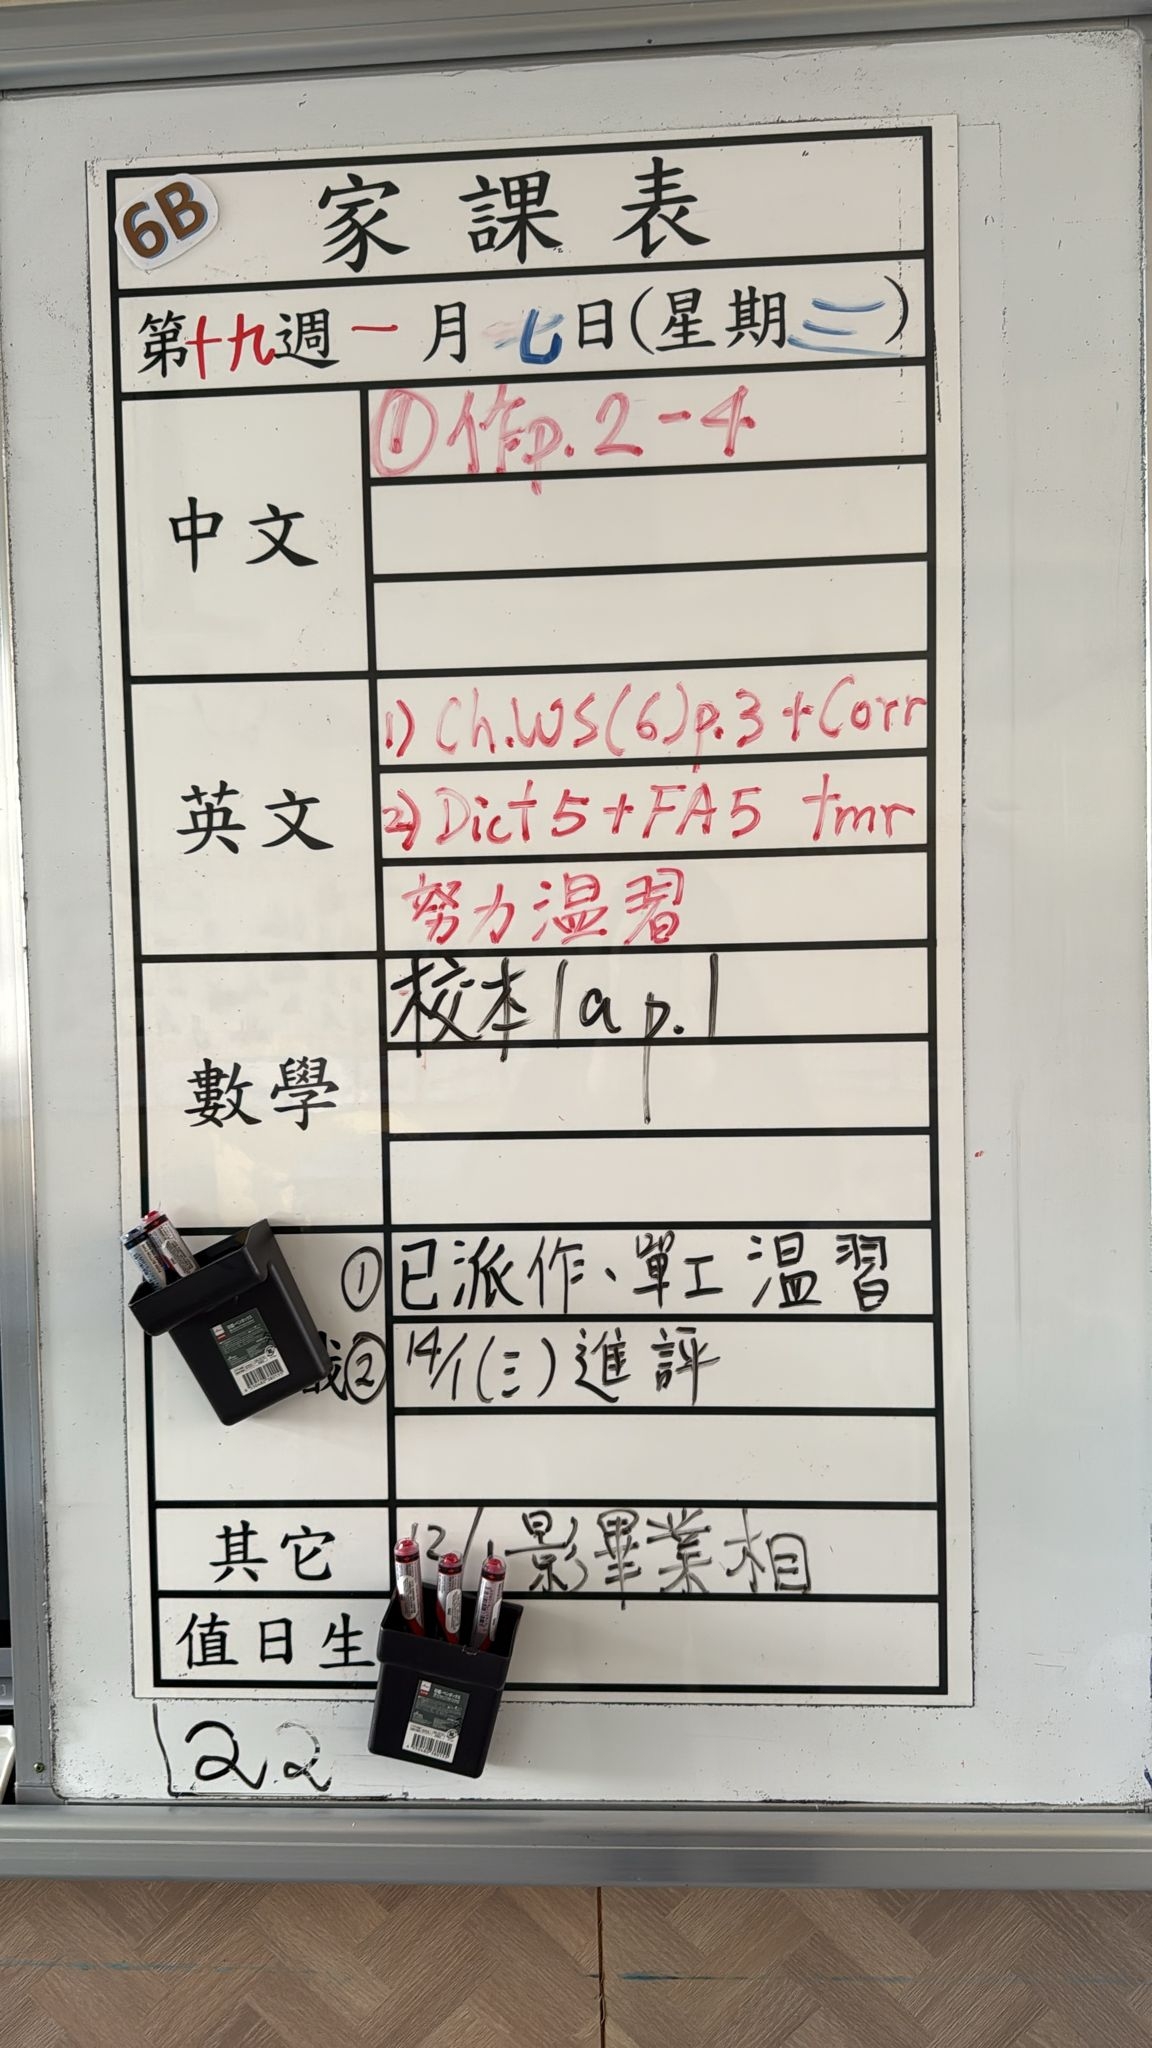 6B
家課表
第十九週一月七日(星期三)
中文
①作p.2-4
英文
1) Ch.WS(6)p.3+Corr
2) Dict 5+FA5 tmr
努力温習
數學
校本1a p.1
① 已派作、單工温習
② 14/1(三)進評
其它
12/1影畢業相
值日生
22